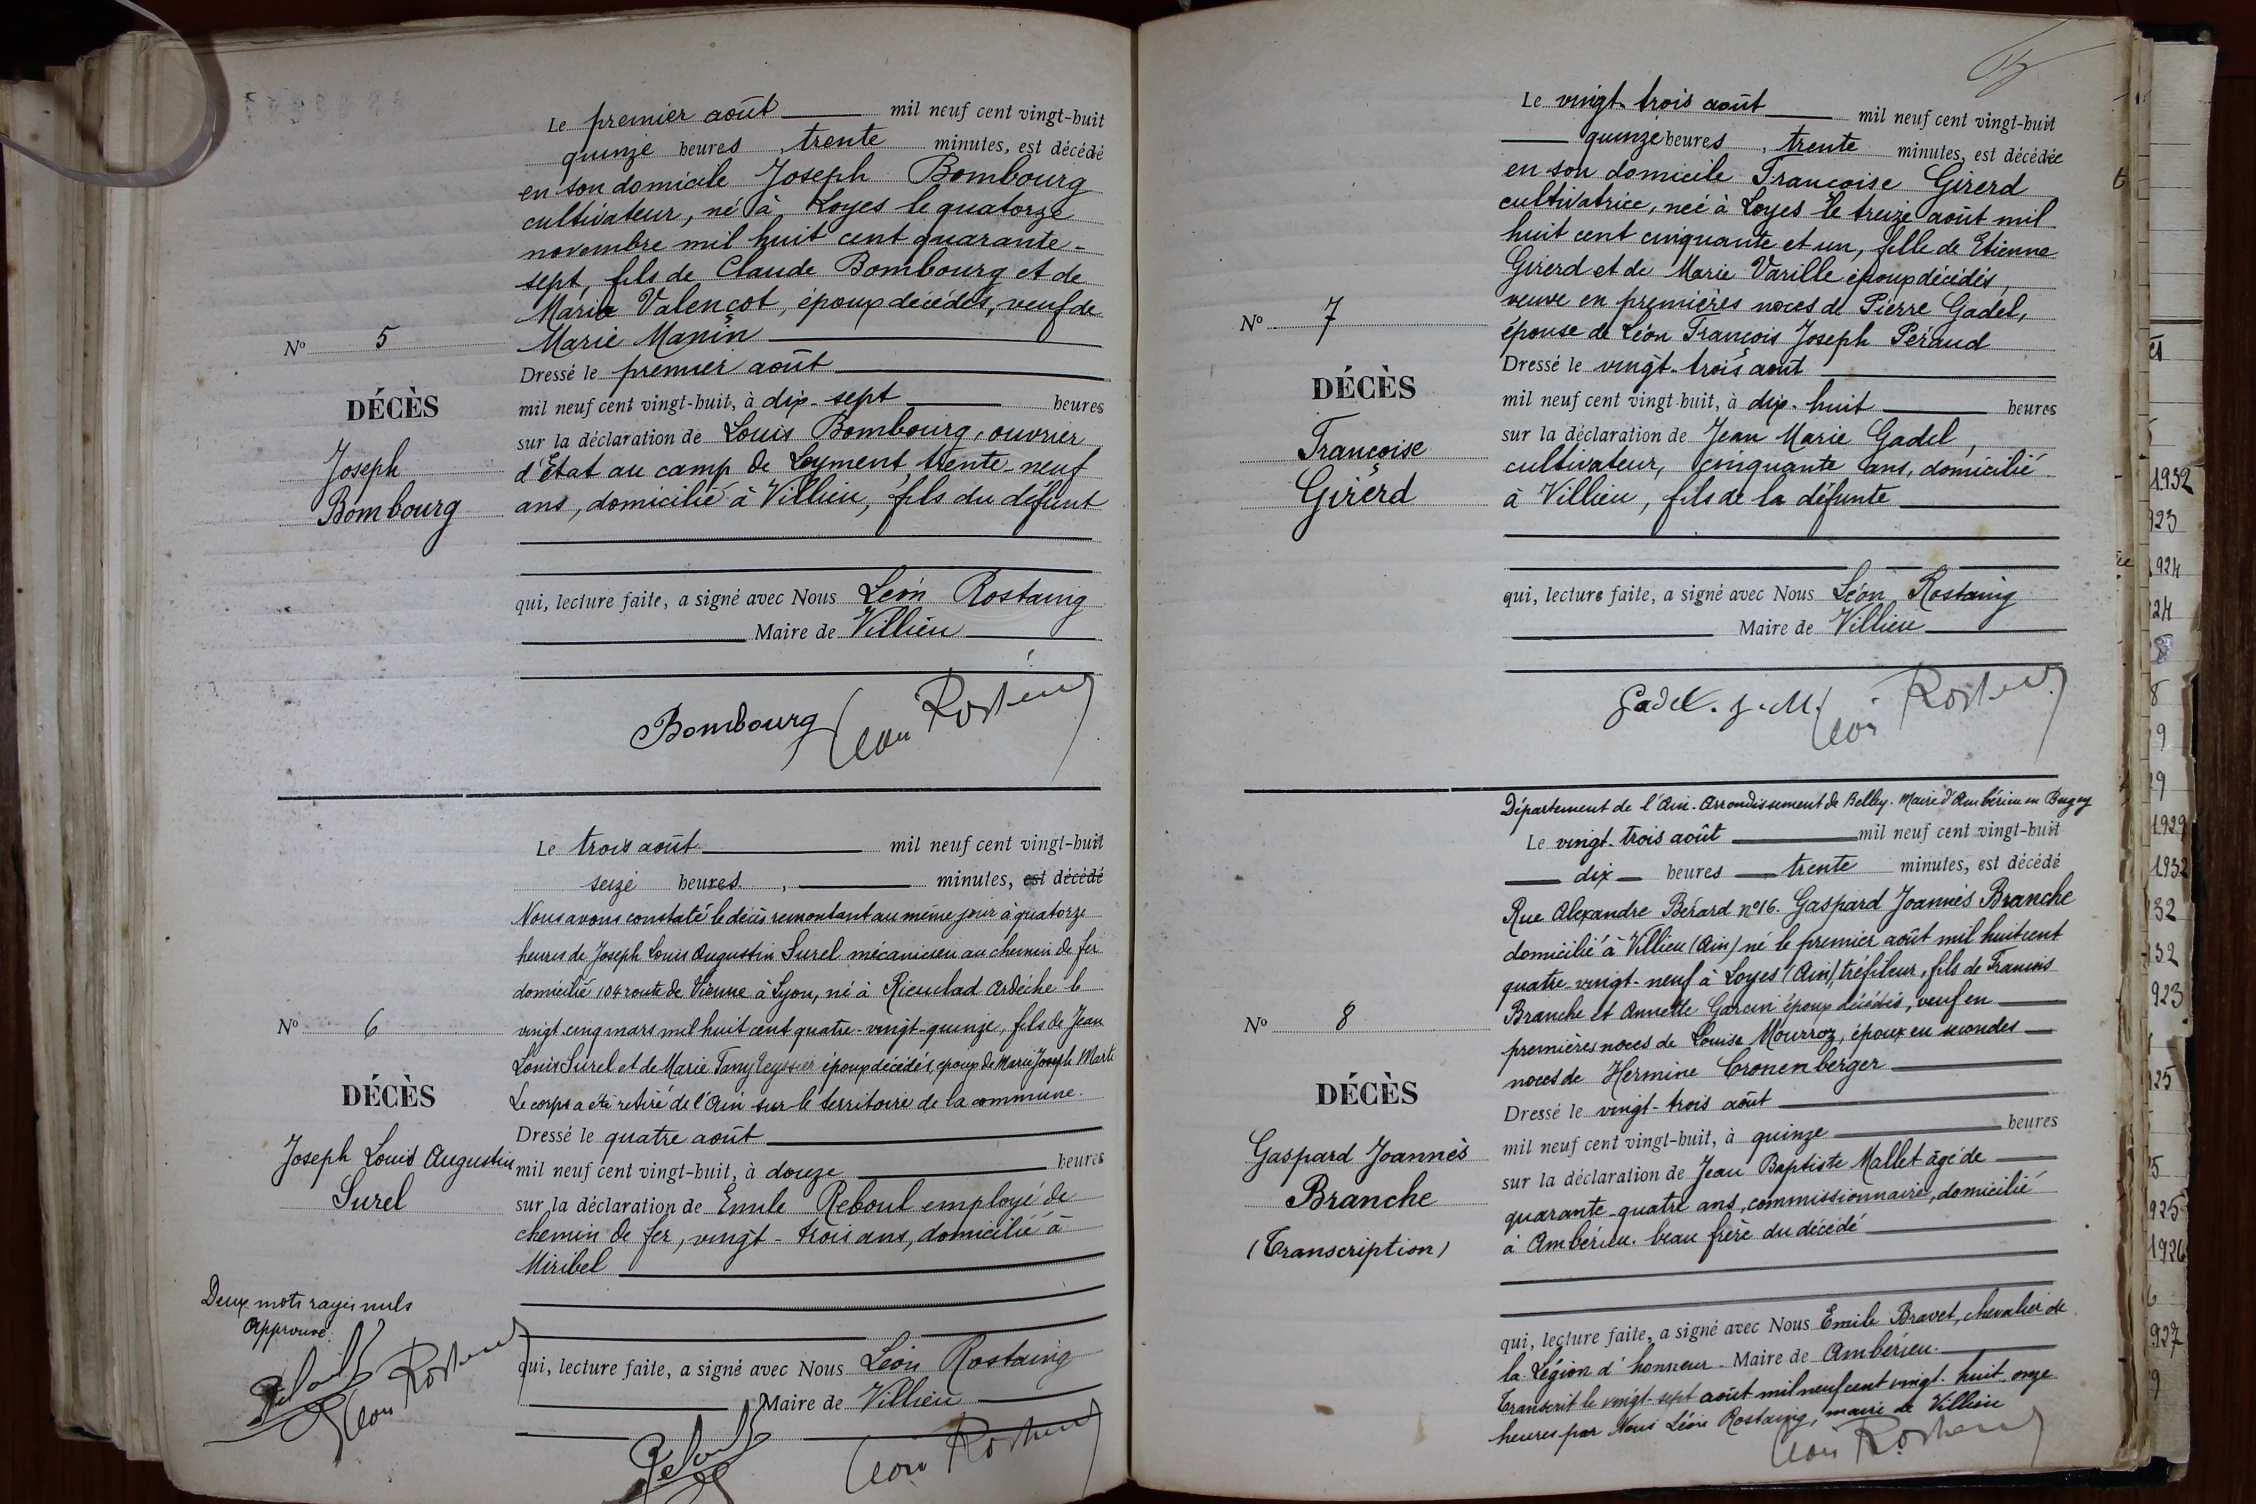 Le premier août mil neuf cent vingt-huit
quinze heures, trente minutes, est décédé
en son domicile Joseph Bombourg
cultivateur, né à Loyes le quatorze
novembre mil huit cent quarante-
sept, fils de Claude Bombourg et de
Marie Valençot, époux décédés, veuf de
Marie Manin
Nº 5
DÉCÈS
Joseph
Bombourg
Dressé le premier août
mil neuf cent vingt-huit, à dix-sept heures
sur la déclaration de Louis Bombourg, ouvrier
d'État au camp de Leyment trente-neuf
ans, domicilié à Villieu, fils du défunt
qui, lecture faite, a signé avec Nous Léon Rostaing
Maire de Villieu
Bombourg Léon Rostaing
Le trois août mil neuf cent vingt-huit
seize heures, minutes, est décédé
Nous avons constaté le décès remontant au même jour à quatorze
heures de Joseph Louis Augustin Surel mécanicien au chemin de fer
domicilié 104 route de Vienne à Lyon, né à Rieutord Ardèche le
vingt cinq mars mil huit cent quatre-vingt-quinze, fils de Jean
Louis Surel et de Marie Fany Teyssier époux décédés, époux de Marie Joseph Marte
Le corps a été retiré de l'Ain sur le territoire de la commune.
Nº 6
DÉCÈS
Joseph Louis Augustin
Surel
Dressé le quatre août
mil neuf cent vingt-huit, à douze heures
sur la déclaration de Emile Reboul employé de
chemin de fer, vingt-trois ans, domicilié à
Miribel
Deux mots rayés nuls
Approuvé.
Reboul Léon Rostaing
qui, lecture faite, a signé avec Nous Léon Rostaing
Maire de Villieu
Reboul Léon Rostaing
Le vingt-trois août mil neuf cent vingt-huit
quinze heures, trente minutes, est décédée
en son domicile Françoise Girerd
cultivatrice, née à Loyes le treize août mil
huit cent cinquante et un, fille de Etienne
Girerd et de Marie Varille époux décédés,
veuve en premières noces de Pierre Gadel,
épouse de Léon François Joseph Péraud
Nº 7
DÉCÈS
Françoise
Girerd
Dressé le vingt-trois août
mil neuf cent vingt-huit, à dix-huit heures
sur la déclaration de Jean Marie Gadel,
cultivateur, cinquante ans, domicilié
à Villieu, fils de la défunte
qui, lecture faite, a signé avec Nous Léon Rostaing
Maire de Villieu
Gadel. J. M. Léon Rostaing
Département de l'Ain. Arrondissement de Belley. Mairie d'Ambérieu en Bugey
Le vingt-trois août mil neuf cent vingt-huit
dix heures trente minutes, est décédé
Rue Alexandre Bérard nº 16. Gaspard Joannès Branche
domicilié à Villieu (Ain) né le premier août mil huit cent
quatre-vingt-neuf à Loyes (Ain), tréfileur, fils de François
Branche et Annette Garcin époux décédés, veuf en
premières noces de Louise Mourroz, époux en secondes
noces de Hermine Cronenberger
Nº 8
DÉCÈS
Gaspard Joannès
Branche
(Transcription)
Dressé le vingt-trois août
mil neuf cent vingt-huit, à quinze heures
sur la déclaration de Jean Baptiste Mallet âgé de
quarante-quatre ans, commissionnaire, domicilié
à Ambérieu. beau frère du décédé
qui, lecture faite, a signé avec Nous Emile Bravet, chevalier de
la Légion d'honneur. Maire de Ambérieu.
Transcrit le vingt-sept août mil neuf cent vingt-huit onze
heures par Nous Léon Rostaing, maire de Villieu
Léon Rostaing
1932
923
924
24
8
9
9
1929
1932
32
32
923
25
5
925
1926
6
927
9